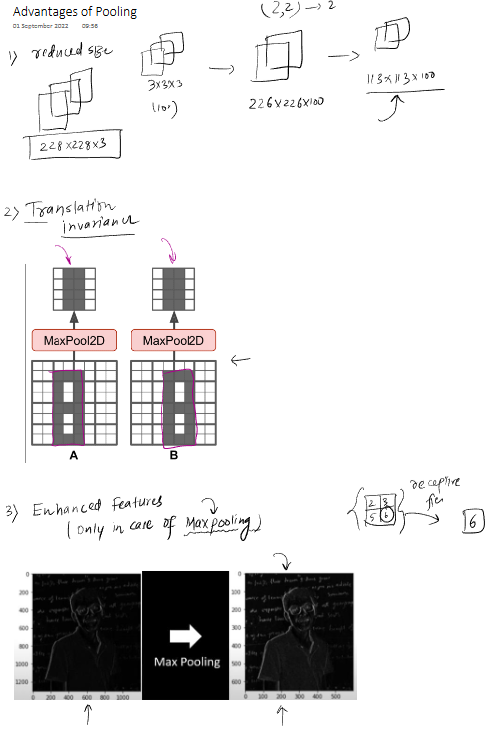 Advantages of Pooling
01 September 2022 09:56
(2,2) → 2
1) reduced size
3x3x3
228x228x3
226x226x100
113x113x100
2) Translation
invariance
MaxPool2D MaxPool2D
A B
3) Enhanced Features
(only in case of Maxpooling)
2 3
5 6
receptive
6
0
200
400
600
800
1000
1200
0 200 400 600 800 1000 1200
Max Pooling
0
100
200
300
400
500
600
0 100 200 300 400 500